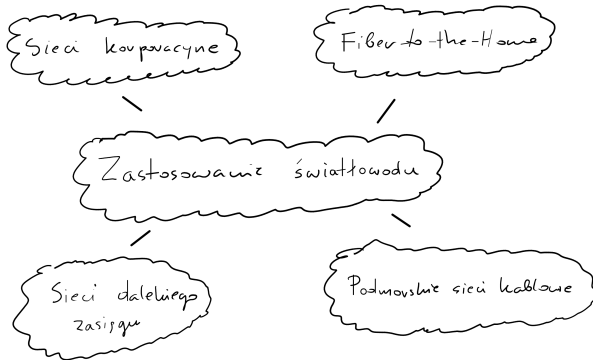 Sieci korporacyjne
Fiber-to-the-Home
Zastosowanie światłowodu
Sieci dalekiego
zasięgu
Podmorskie sieci kablowe